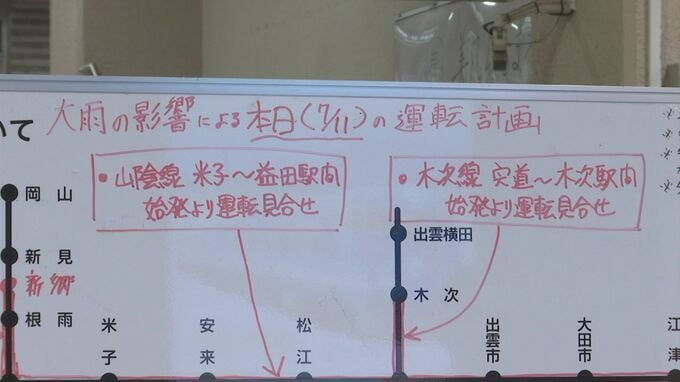 いて 大雨の影響による本日(7/11)の運転計画
・山陰線 米子～益田駅間
始発より運転見合せ
・木次線 宍道～木次駅間
始発より運転見合せ
岡山
新見
新郷
根雨
米子
安来
松江
出雲横田
木次
出雲市
大田市
江津